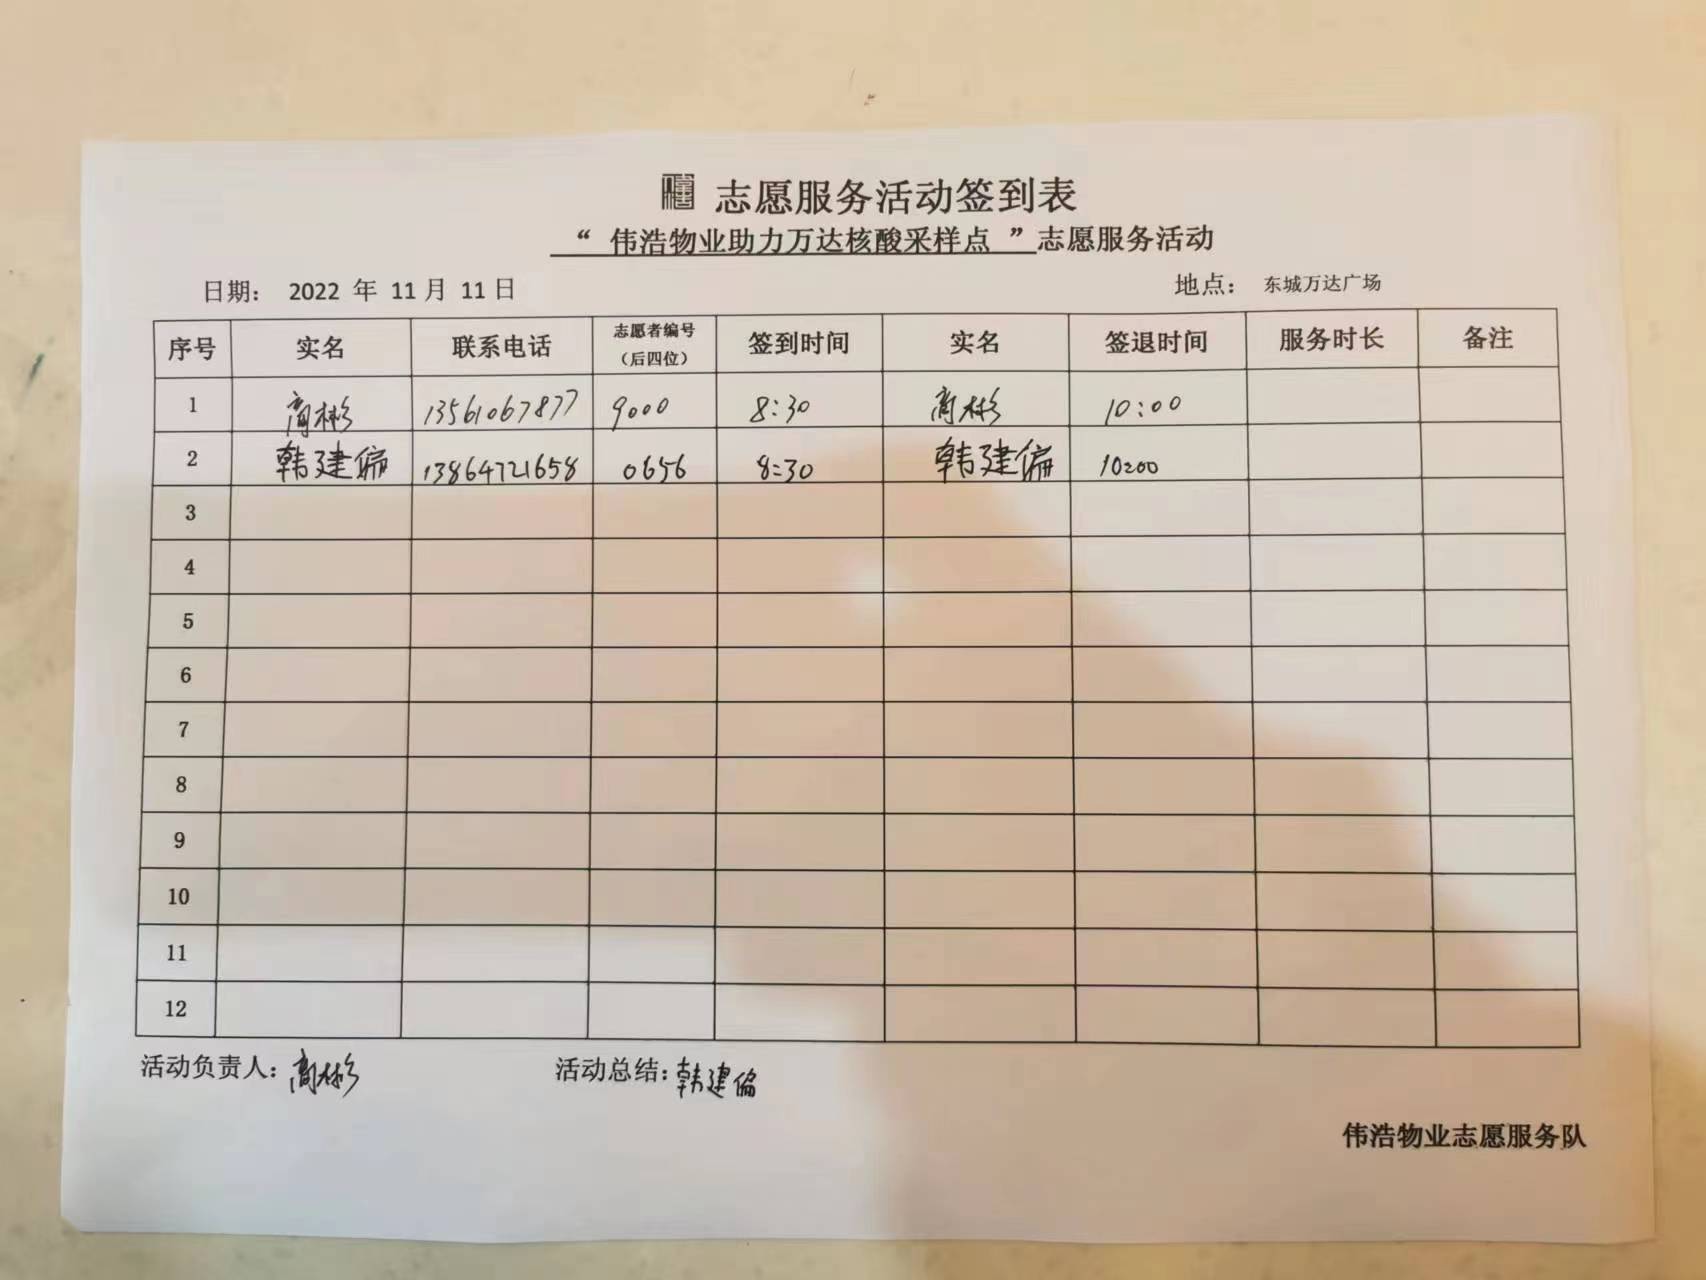 志愿服务活动签到表
“ 伟浩物业助力万达核酸采样点 ”志愿服务活动
日期： 2022 年 11 月 11 日 地点： 东城万达广场
序号 实名 联系电话 志愿者编号（后四位） 签到时间 实名 签退时间 服务时长 备注
1 商彬 13561067877 9000 8:30 商彬 10:00
2 韩建偏 13864721658 0656 8:30 韩建偏 10:00
3
4
5
6
7
8
9
10
11
12
活动负责人：商彬 活动总结：韩建偏
伟浩物业志愿服务队